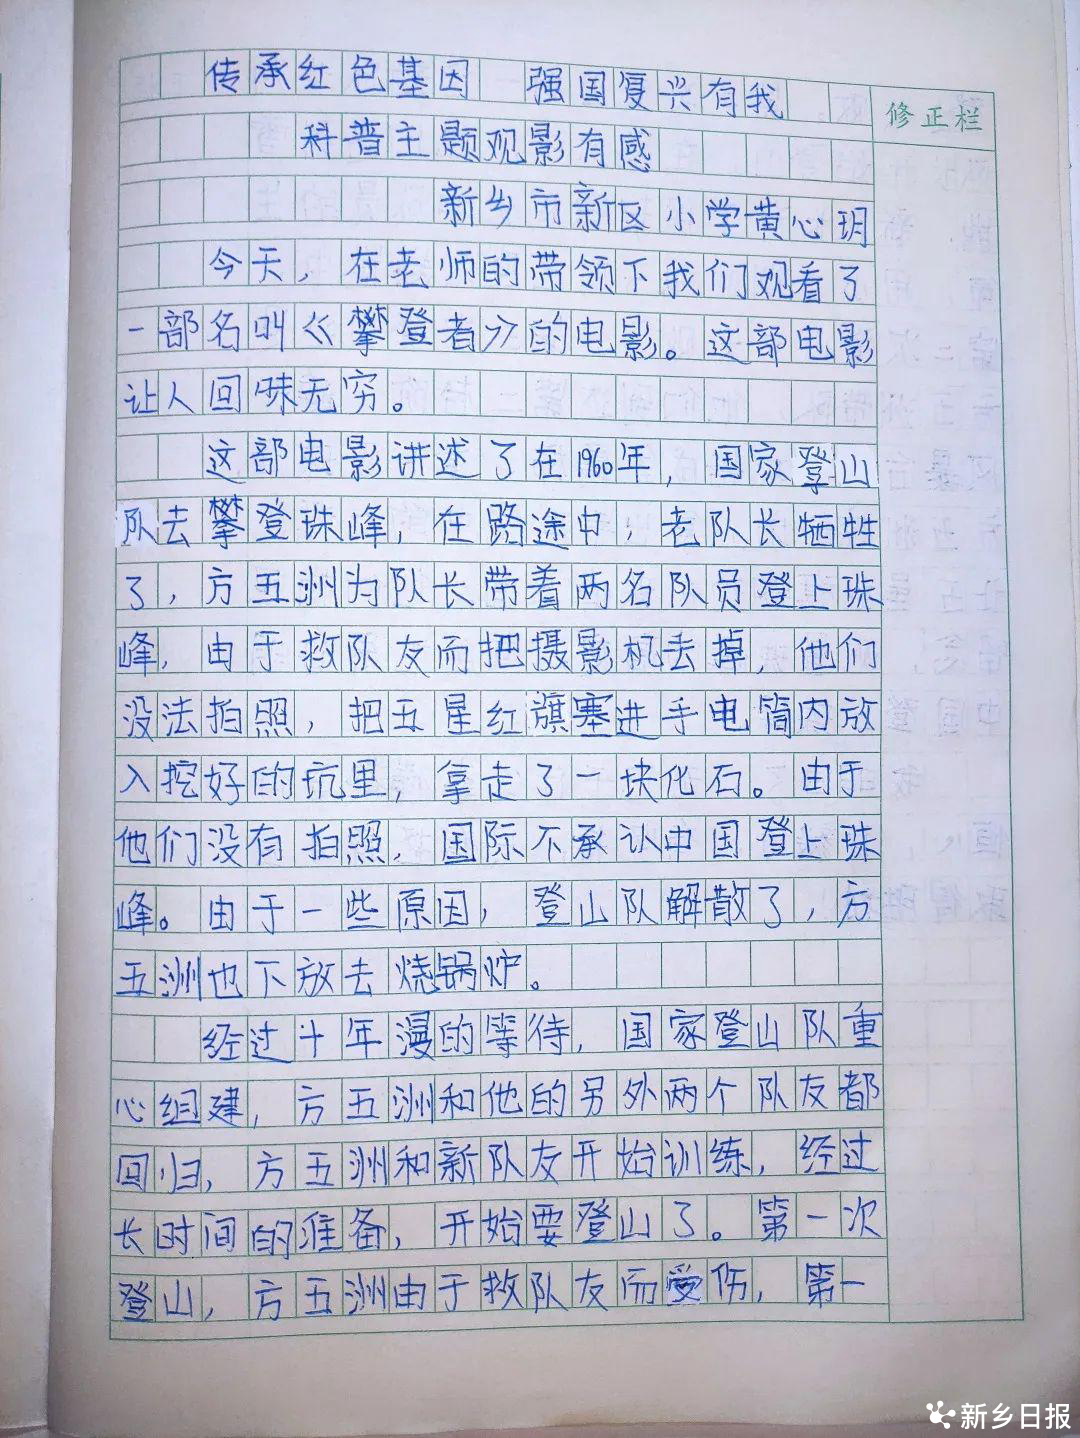 传承红色基因 强国复兴有我
修正栏
科普主题观影有感
新乡市新区小学黄心玥
今天，在老师的带领下我们观看了
一部名叫《攀登者》的电影。这部电影
让人回味无穷。
这部电影讲述了在1960年，国家登山
队去攀登珠峰，在路途中，老队长牺牲
了，方五洲为队长带着两名队员登上珠
峰，由于救队友而把摄影机丢掉，他们
没法拍照，把五星红旗塞进手电筒内放
入挖好的坑里，拿走了一块化石。由于
他们没有拍照，国际不承认中国登上珠
峰。由于一些原因，登山队解散了，方
五洲也下放去烧锅炉。
经过十年漫的等待，国家登山队重
心组建，方五洲和他的另外两个队友都
回归，方五洲和新队友开始训练，经过
长时间的准备，开始要登山了。第一次
登山，方五洲由于救队友而受伤，第一
新乡日报